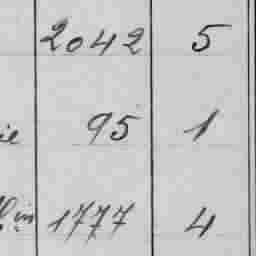 2042 5
ie 95 1
in 1777 4